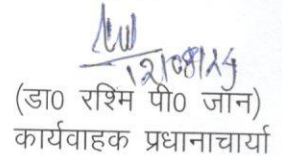 12/08/24
(डा0 रश्मि पी0 जॉन)
कार्यवाहक प्रधानाचार्या